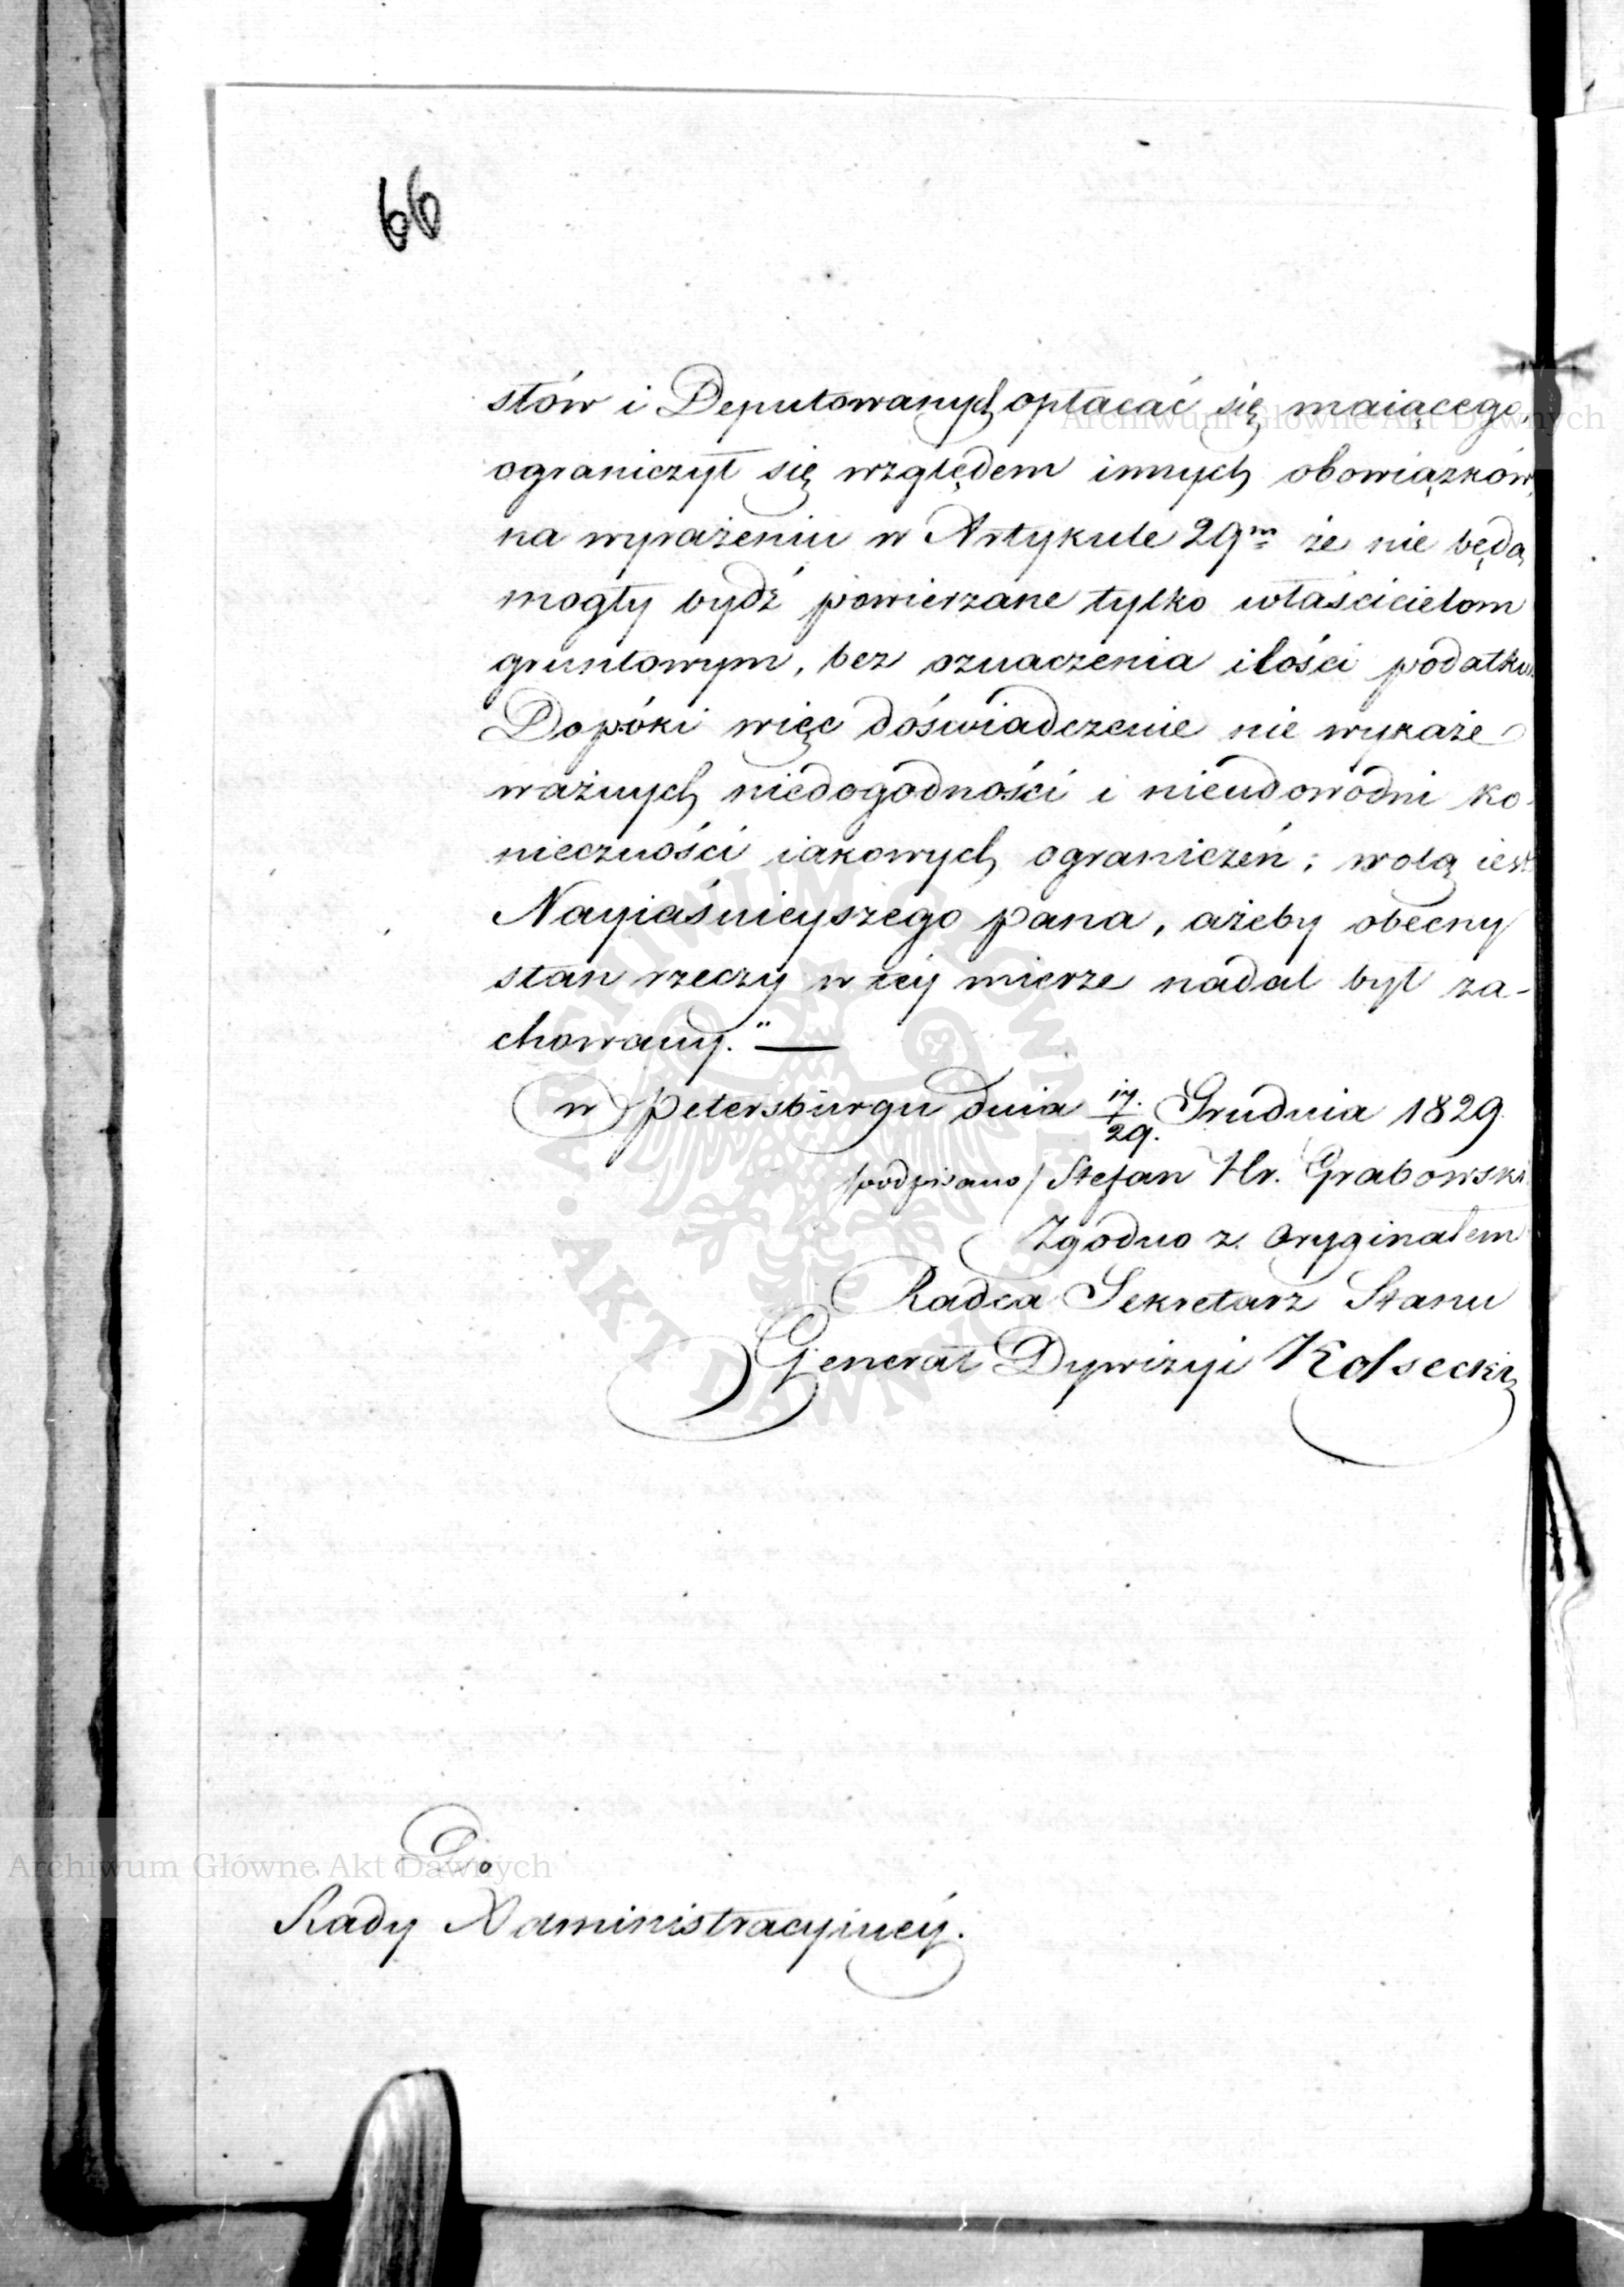 66
słów i Deputowanych opłacać się maiącego,
ograniczył się względem innych obowiązków,
na wyrażeniu w Artykule 29m że nie będą
mogły bydź powierzane tylko właścicielom
gruntowym, bez oznaczenia ilości podatku.
Dopóki więc doświadczenie nie wykaże
ważnych niedogodności i nieudowodni ko-
nieczności iakowych ograniczeń; wolą iest
Nayiaśnieyszego Pana, ażeby obecny
stan rzeczy w tey mierze nadal był za-
chowany."
w Petersburgu dnia 17./29. Grudnia 1829.
/podpisano/ Stefan Hr. Grabowski
Zgodno z Oryginałem
Radca Sekretarz Stanu
Generał Dywizyi Kossecki
Do
Rady Administracyiney.
Archiwum Główne Akt Dawnych
Archiwum Główne Akt Dawnych
ARCHIWUM GŁÓWNE • AKT DAWNYCH •